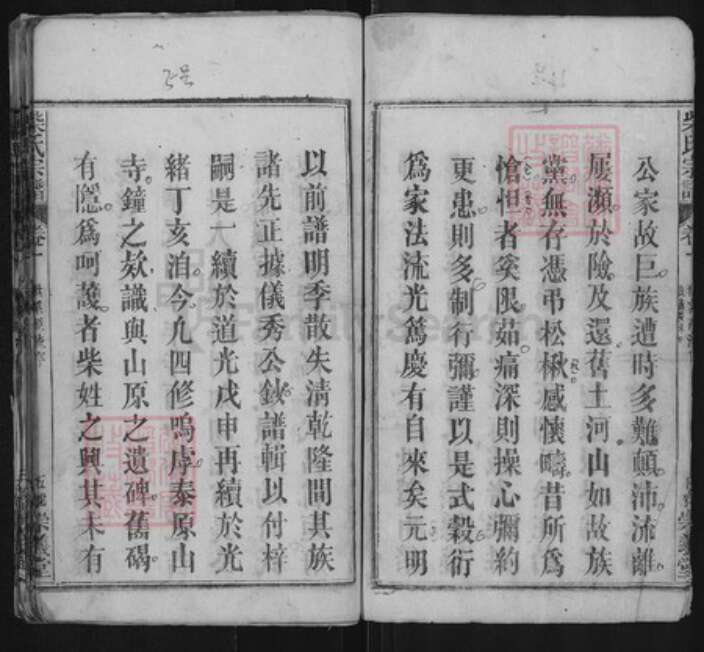 公家故巨族遭時多難顛沛流離
屢瀕於險及還舊土河山如故族
黨無存憑弔松楸感懷疇昔所爲
愴怛者奚限茹痛深則操心彌約
更患則多制行彌謹以是式穀衍
爲家法流光篤慶有自來矣元明
以前譜明季散失清乾隆間其族
諸先正據儀秀公鈔譜輯以付梓
嗣是一續於道光戊申再續於光
緒丁亥洎今凡四修嗚虖泰原山
寺鐘之欵識與山原之遺碑舊碣
有隱爲呵護者柴姓之興其未有
柴氏宗譜
卷一
柴氏宗譜
FamilySearch